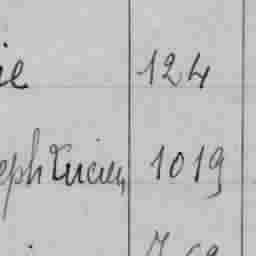 ie 124
eph Lucien 1019